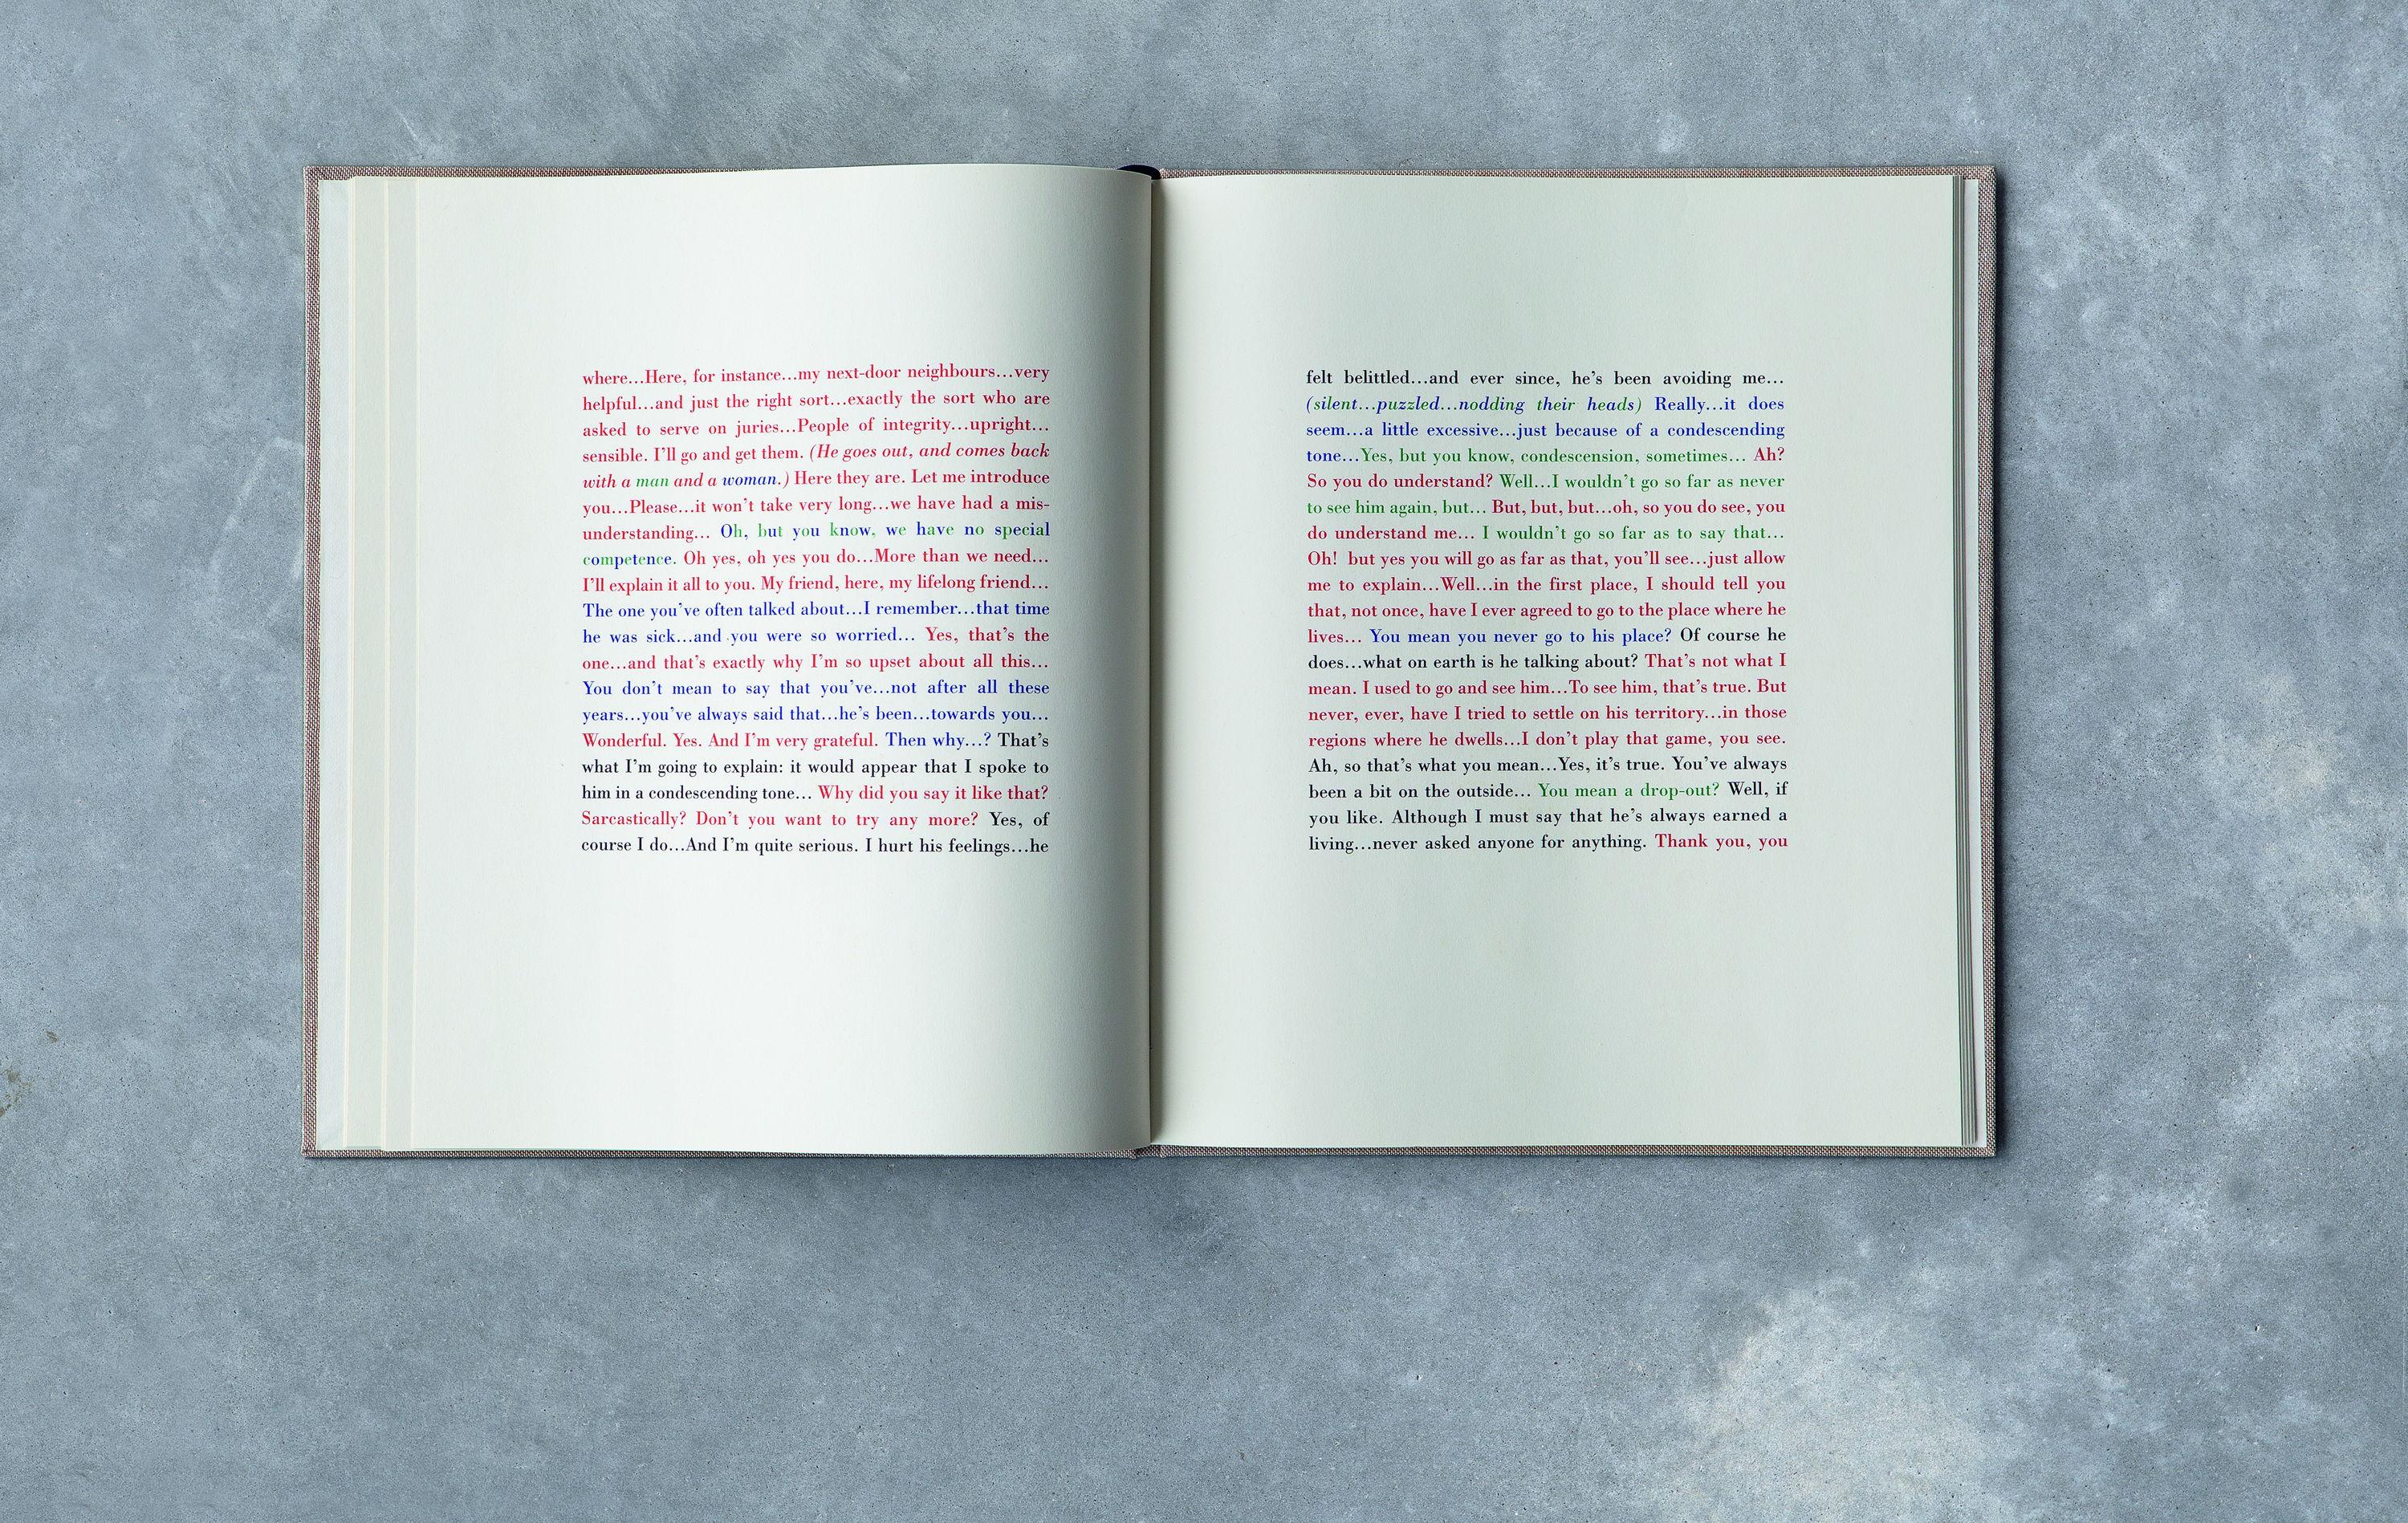 where...Here, for instance...my next-door neighbours...very
helpful...and just the right sort...exactly the sort who are
asked to serve on juries...People of integrity...upright...
sensible. I'll go and get them. (He goes out, and comes back
with a man and a woman.) Here they are. Let me introduce
you...Please...it won't take very long...we have had a mis-
understanding... Oh, but you know, we have no special
competence. Oh yes, oh yes you do...More than we need...
I'll explain it all to you. My friend, here, my lifelong friend...
The one you've often talked about...I remember...that time
he was sick...and you were so worried... Yes, that's the
one...and that's exactly why I'm so upset about all this...
You don't mean to say that you've...not after all these
years...you've always said that...he's been...towards you...
Wonderful. Yes. And I'm very grateful. Then why...? That's
what I'm going to explain: it would appear that I spoke to
him in a condescending tone... Why did you say it like that?
Sarcastically? Don't you want to try any more? Yes, of
course I do...And I'm quite serious. I hurt his feelings...he
felt belittled...and ever since, he's been avoiding me...
(silent...puzzled...nodding their heads) Really...it does
seem...a little excessive...just because of a condescending
tone...Yes, but you know, condescension, sometimes... Ah?
So you do understand? Well...I wouldn't go so far as never
to see him again, but... But, but, but...oh, so you do see, you
do understand me... I wouldn't go so far as to say that...
Oh! but yes you will go as far as that, you'll see...just allow
me to explain...Well...in the first place, I should tell you
that, not once, have I ever agreed to go to the place where he
lives... You mean you never go to his place? Of course he
does...what on earth is he talking about? That's not what I
mean. I used to go and see him...To see him, that's true. But
never, ever, have I tried to settle on his territory...in those
regions where he dwells...I don't play that game, you see.
Ah, so that's what you mean...Yes, it's true. You've always
been a bit on the outside... You mean a drop-out? Well, if
you like. Although I must say that he's always earned a
living...never asked anyone for anything. Thank you, you